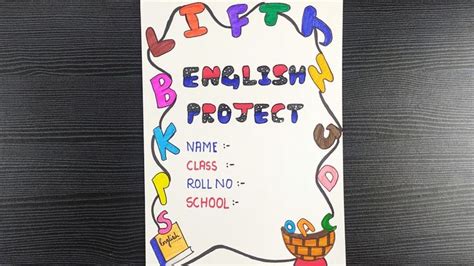 L I F T
ENGLISH
PROJECT
B
K
P
S
NAME :-
CLASS :-
ROLL NO :-
SCHOOL :-
N
G
D
O A C
English